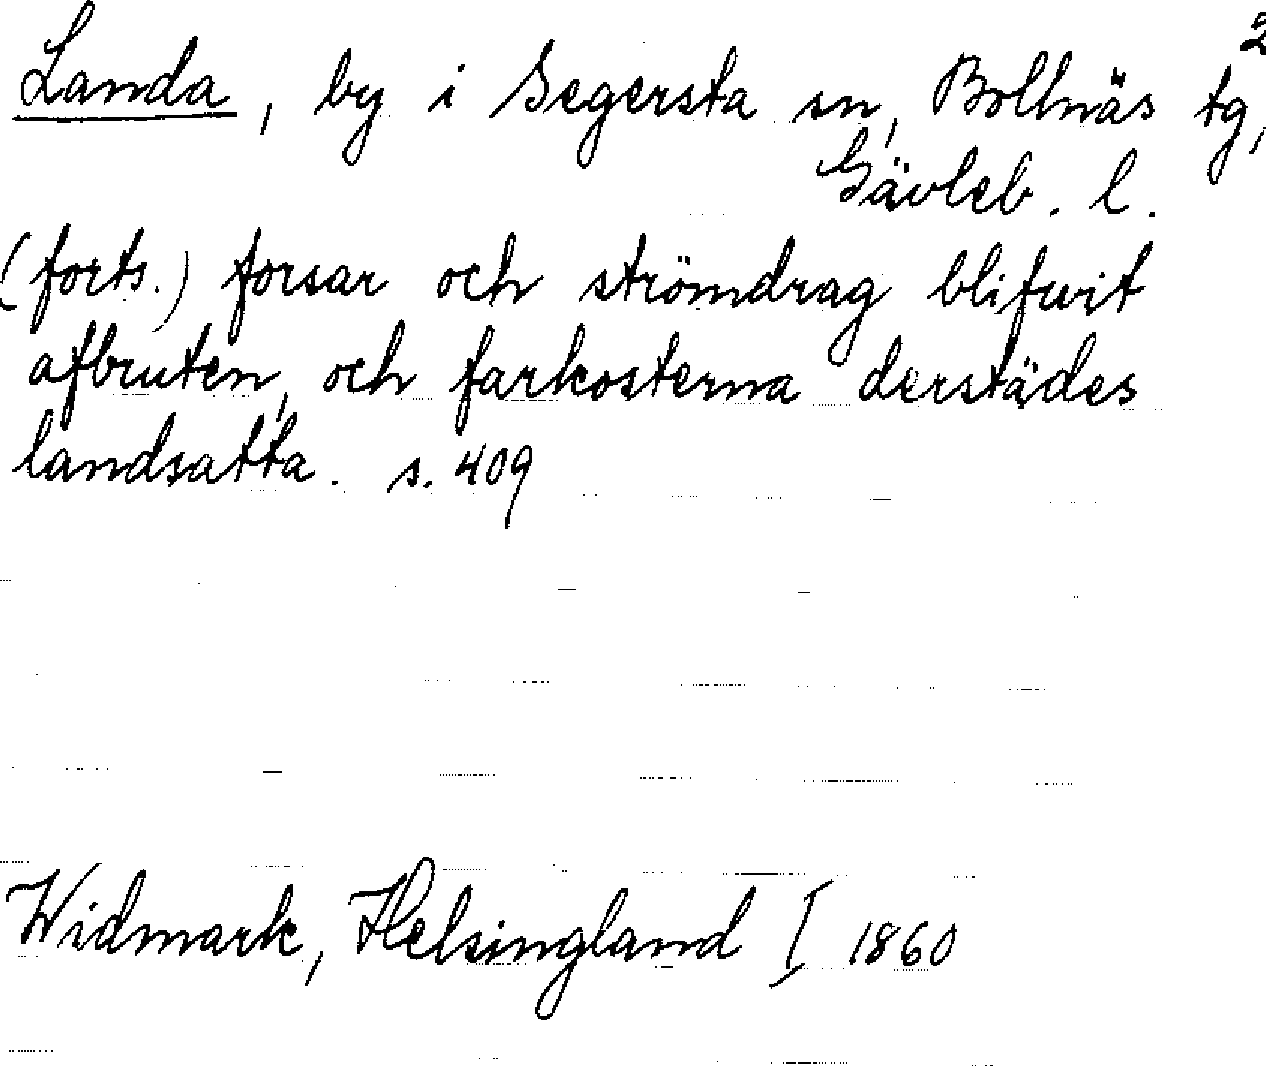 2
Landa, by i Segersta sn, Bollnäs tg,
Gävleb. l.
(forts.) forsar och strömdrag blifvit
afbruten, och farkosterna derstädes
landsatta. s. 409
Widmark, Helsingland I 1860